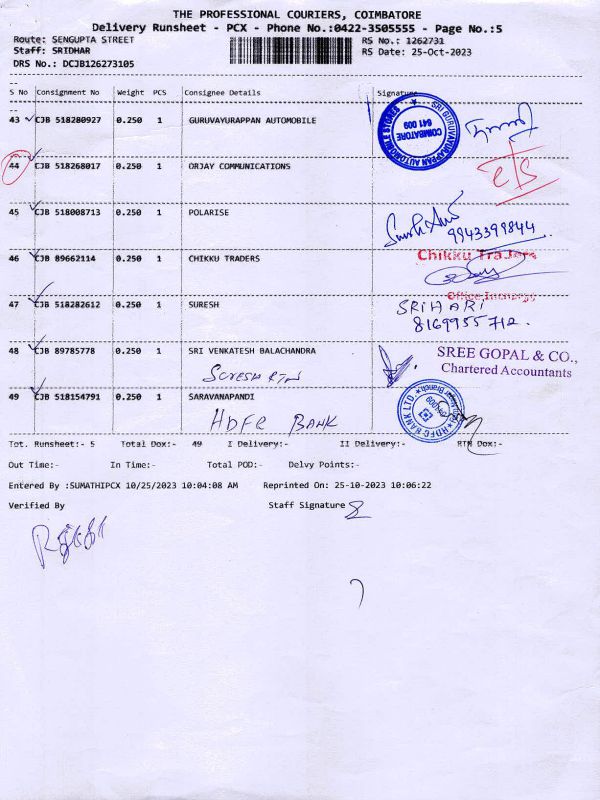 THE PROFESSIONAL COURIERS, COIMBATORE
Delivery Runsheet - PCX - Phone No.:0422-3505555 - Page No.:5
Route: SENGUPTA STREET
RS No.: 1262731
Staff: SRIDHAR
RS Date: 25-Oct-2023
DRS No.: DCJB126273105
S No Consignment No Weight PCS Consignee Details Signature
43 CJB 518280927 0.250 1 GURUVAYURAPPAN AUTOMOBILE
SRI GURUVAYURAPPAN AUTOMOBILE STORES
COIMBATORE
641 009
44 CJB 518268017 0.250 1 ORJAY COMMUNICATIONS
45 CJB 518008713 0.250 1 POLARISE
9943399844
46 CJB 89662114 0.250 1 CHIKKU TRADERS
Chikku Traders
Office Incharge
47 CJB 518282612 0.250 1 SURESH
SRIHARI
8169955712.
48 CJB 89785778 0.250 1 SRI VENKATESH BALACHANDRA
SREE GOPAL & CO.,
Chartered Accountants
SURESH RTN
49 CJB 518154791 0.250 1 SARAVANAPANDI
HDFC BANK
HDFC BANK LTD.
Tot. Runsheet:- 5 Total Dox:- 49 I Delivery:- II Delivery:- RTN Dox:-
Out Time:- In Time:- Total POD:- Delvy Points:-
Entered By :SUMATHIPCX 10/25/2023 10:04:08 AM Reprinted On: 25-10-2023 10:06:22
Verified By Staff Signature